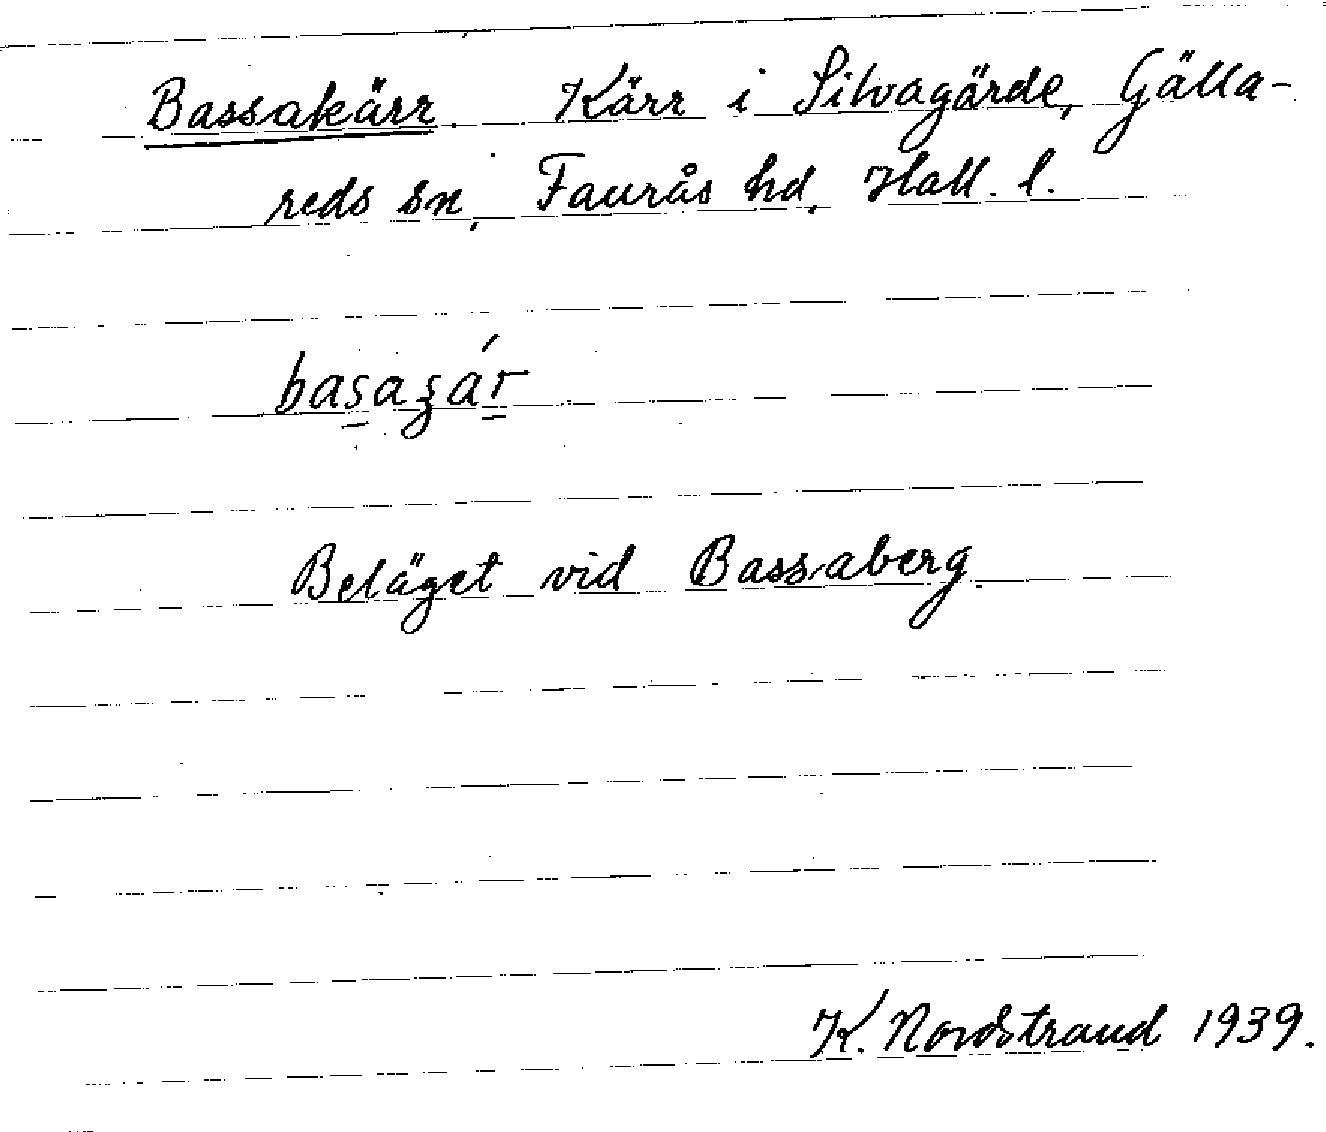 Bassakärr. Kärr i Silvagärde, Gälla-
reds sn, Faurås hd. Hall. l.
Beläget vid Bassaberg.
K. Nordstrand 1939.